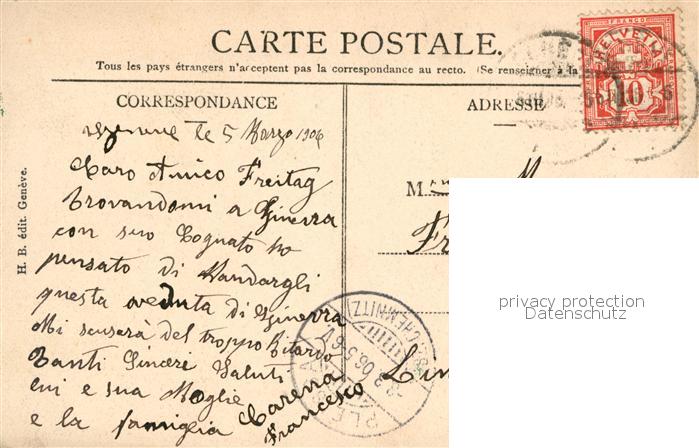 CARTE POSTALE.
Tous les pays étrangers n'acceptent pas la correspondance au recto. (Se renseigner à la
CORRESPONDANCE
ADRESSE
le 5 Marzo 1906
Caro Amico Freitag
trovandomi a Ginevra
con suo Cognato ho
pensato di Mandargli
questa veduta di Ginevra
Mi scuserà del troppo Ritardo
Tanti Sinceri Saluti
lui e sua Moglie
e la famiglia Carenna
Francesco
M.
Fr
Lin
H. B. édit. Genève.
FRANCO
HELVETIA
10
(CHEMNITZ)
privacy protection
Datenschutz